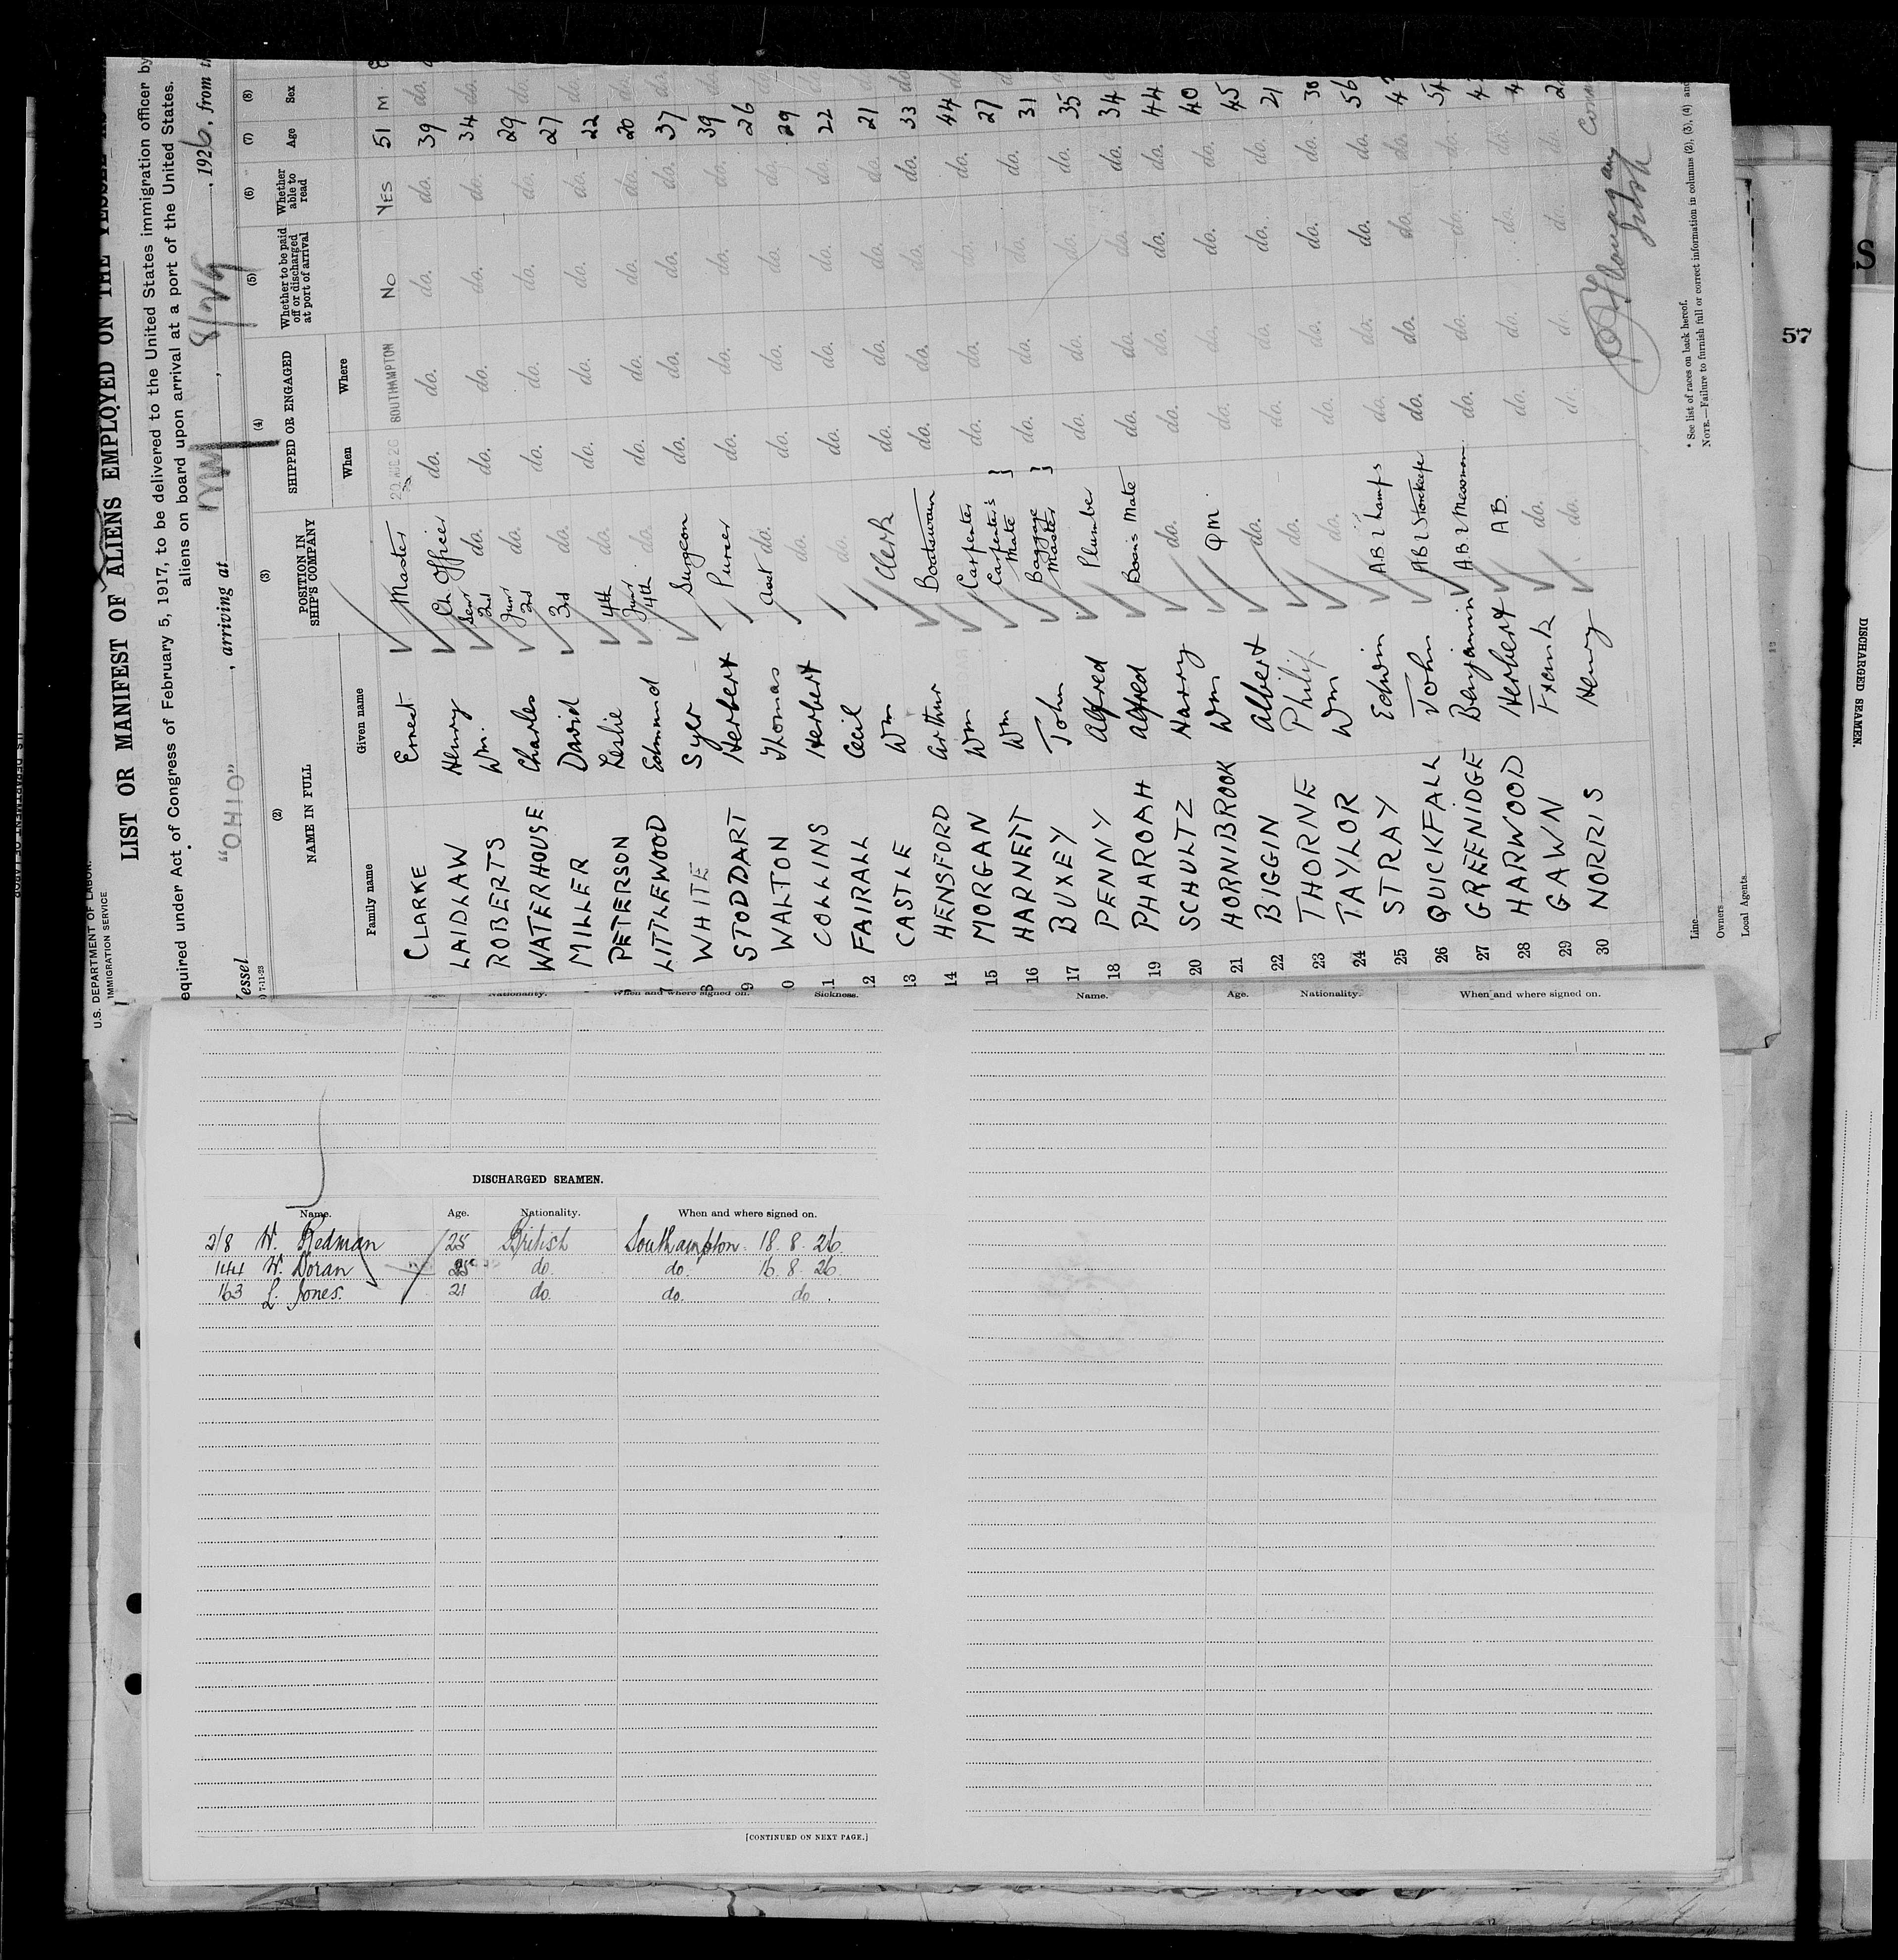 U.S. DEPARTMENT OF LABOR.
IMMIGRATION SERVICE
LIST OR MANIFEST OF ALIENS EMPLOYED ON THE VESSEL
equired under Act of Congress of February 5, 1917, to be delivered to the United States immigration officer by
aliens on board upon arrival at a port of the United States.
essel "OHIO", arriving at 8/29, 1926, from
(2) (3) (4) (5) (6) (7) (8)
NAME IN FULL POSITION IN SHIP'S COMPANY SHIPPED OR ENGAGED Whether to be paid off or discharged at port of arrival Whether able to read Age Sex
Family name Given name When Where
CLARKE Ernest Master 20 AUG 26 SOUTHAMPTON No YES 51 M
LAIDLAW Henry Ch. Officer do. do. do. do. 39 do.
ROBERTS Wm. Senr 2nd do. do. do. do. do. 34 do.
WATERHOUSE Charles Junr 2nd do. do. do. do. do. 29 do.
MILLER David 3rd do. do. do. do. do. 27 do.
PETERSON Leslie 4th do. do. do. do. do. 22 do.
7 LITTLEWOOD Edmund Junr 4th do. do. do. do. do. 20 do.
8 WHITE Syer Surgeon do. do. do. do. 37 do.
9 STODDART Herbert Purser do. do. do. do. 39 do.
0 WALTON Thomas Asst do. do. do. do. do. 26 do.
11 COLLINS Herbert do. do. do. do. do. 29 do.
12 FAIRALL Cecil do. do. do. do. do. 22 do.
13 CASTLE Wm Clerk do. do. do. do. 21 do.
14 HENSFORD Arthur Boatswain do. do. do. do. 33 do.
15 MORGAN Wm Carpenter do. do. do. do. 44 do.
16 HARNETT Wm Carpenter's Mate do. do. do. do. 27
17 BUXEY John Baggage Master do. do. do. do. 31
18 PENNY Alfred Plumber do. do. do. do. 35
19 PHAROAH Alfred Bosn's Mate do. do. do. do. 34
20 SCHULTZ Harry do. do. do. do. do. 44
21 HORNIBROOK Wm QM. do. do. do. do. 40
22 BIGGIN Albert do. do. do. do. do. 45
23 THORNE Philip do. do. do. do. do. 21
24 TAYLOR Wm do. do. do. do. do. 30
25 STRAY Edwin AB & Lamps do. do. do. do. 56
26 QUICKFALL John AB & Storekeep do. do. do. do.
27 GREENIDGE Benjamin AB & Messman do. do. do. do. 54
28 HARWOOD Herbert AB. do. do. do. do.
29 GAWN Frank do. do. do. do. do.
30 NORRIS Henry do. do. do. do. do.
* See list of races on back hereof.
NOTE.—Failure to furnish full or correct information in columns (2), (3), (4) and
Line
Owners
Local Agents
57
Nationality. When and where signed on. Sickness.
Name. Age. Nationality. When and where signed on.
DISCHARGED SEAMEN.
Name. Age. Nationality. When and where signed on.
218 W. Redman 25 British Southampton 18. 8. 26.
144 W. Doran 25 do. do. 16. 8. 26.
163 L. Jones. 21 do. do. do.
[CONTINUED ON NEXT PAGE.]
DISCHARGED SEAMEN.